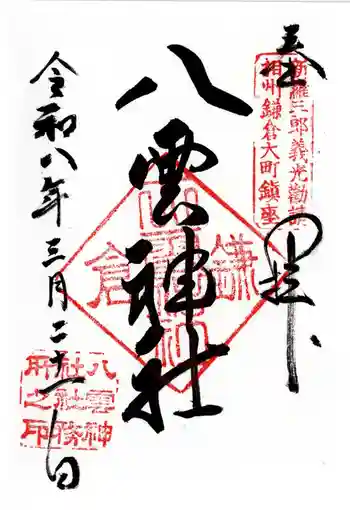 奉拝
新羅三郎義光勧請
相州鎌倉大町鎮座
八雲神社
鎌倉
令和八年三月二十一日
八雲神
社社務
所之印